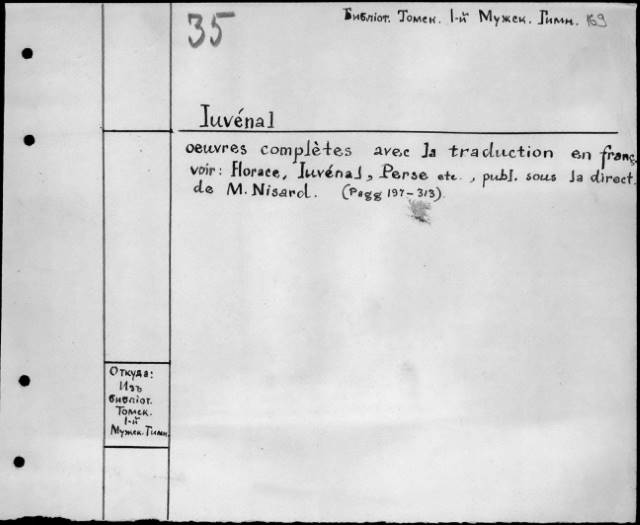 35
Библіот. Томск. 1-й Мужск. Гимн. 169
Iuvénal
oeuvres complètes avec la traduction en franç.
voir: Horace, Iuvénal, Perse etc., publ. sous la direct.
de M. Nisard. (Pagg 197-313).
Откуда:
Изъ
библіот.
Томск.
1-й
Мужск. Гимн.